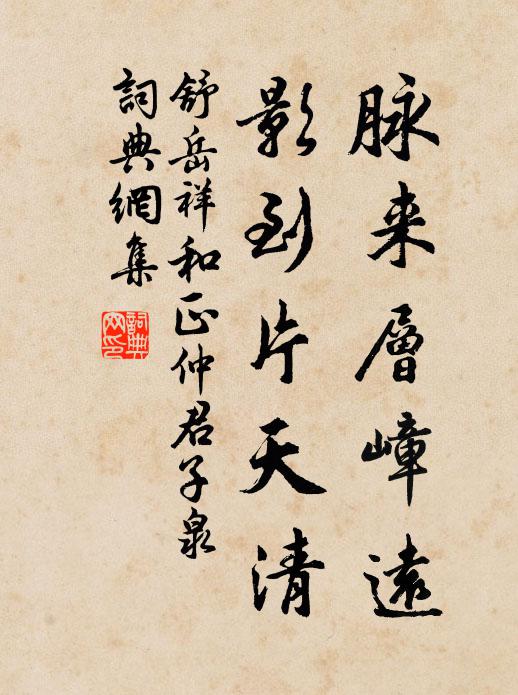 脉来層嶂遠
影到片天清
舒岳祥和正仲君子泉
詞典網集
詞典網印